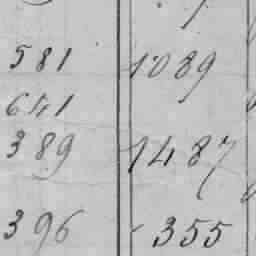 581 1039
641
389 1487
396 355